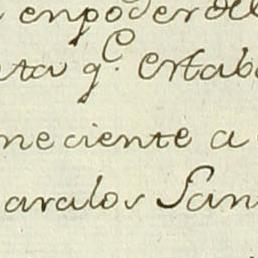 enpoder del
ta q.e estab
neciente a
aralos San